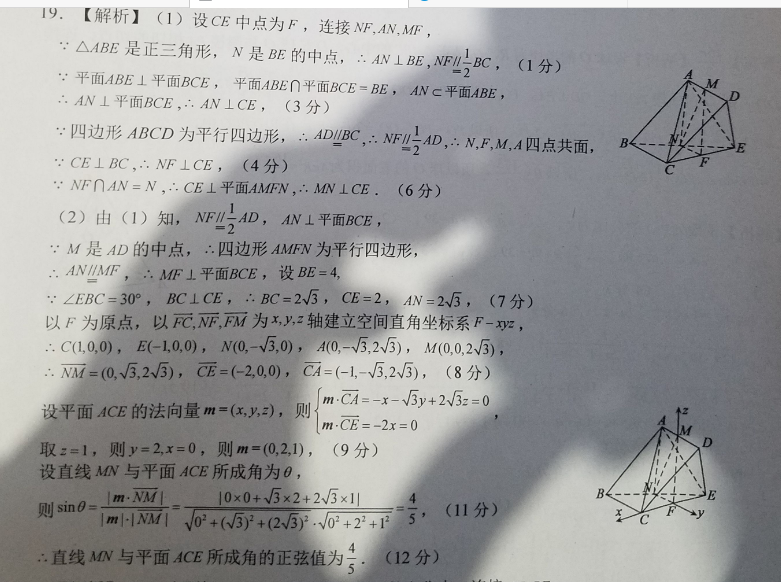 19. 【解析】（1）设CE中点为F，连接NF,AN,MF，
∵ △ABE是正三角形，N是BE的中点，∴ AN⊥BE,NF∥=1/2BC，（1分）
∵ 平面ABE⊥平面BCE，平面ABE∩平面BCE=BE，AN⊂平面ABE，
∴ AN⊥平面BCE,∴ AN⊥CE，（3分）
∵四边形ABCD为平行四边形，∴ AD∥=BC,∴ NF∥=1/2AD,∴ N,F,M,A四点共面，
∵ CE⊥BC,∴ NF⊥CE，（4分）
∵ NF∩AN=N,∴ CE⊥平面AMFN,∴ MN⊥CE．（6分）
（2）由（1）知，NF∥=1/2AD，AN⊥平面BCE，
∵ M是AD的中点，∴四边形AMFN为平行四边形，
∴ AN∥=MF，∴ MF⊥平面BCE，设BE=4,
∵ ∠EBC=30°，BC⊥CE，∴ BC=2√3，CE=2，AN=2√3，（7分）
以F为原点，以FC,NF,FM为x,y,z轴建立空间直角坐标系F-xyz，
∴ C(1,0,0)，E(-1,0,0)，N(0,-√3,0)，A(0,-√3,2√3)，M(0,0,2√3)，
∴ NM=(0,√3,2√3)，CE=(-2,0,0)，CA=(-1,-√3,2√3)，（8分）
设平面ACE的法向量m=(x,y,z)，则{m·CA=-x-√3y+2√3z=0
m·CE=-2x=0，
取z=1，则y=2,x=0，则m=(0,2,1)，（9分）
设直线MN与平面ACE所成角为θ，
则sinθ=|m·NM|/|m|·|NM|=|0×0+√3×2+2√3×1|/√0²+(√3)²+(2√3)²·√0²+2²+1²=4/5，（11分）
∴直线MN与平面ACE所成角的正弦值为4/5．（12分）
A
M
D
B
N
E
C
F
z
A
M
D
B
N
E
x
C
F
y